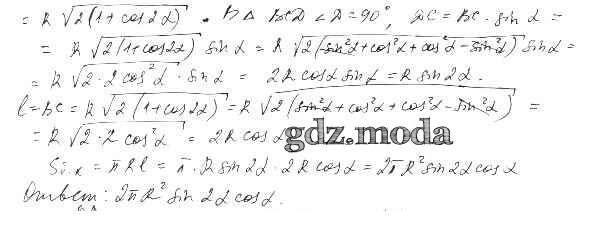 = R √2(1+cos2α). В Δ BCD ∠D=90°, DC = BC·sin α =
= R √2(1+cos2α) sin α = R √2(sin²α+cos²α+cos²α−sin²α) sin α =
= R √2·2cos²α · sin α = 2R cosα sinα = R sin 2α.
l=BC = R √2(1+cos2α) = R √2(sin²α+cos²α+cos²α−sin²α) =
= R √2·2 cos²α = 2R cos α
gdz.moda
Sб.к = πRl = π·R sin 2α · 2R cosα = 2πR² sin 2α cos α
Ответ: 2πR² sin 2α cosα.